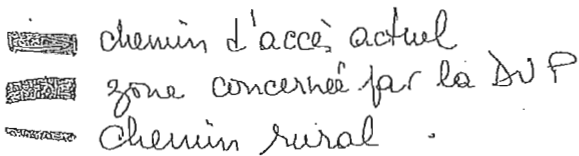 chemin d'accès actuel
zone concerneé par la DUP
chemin rural .